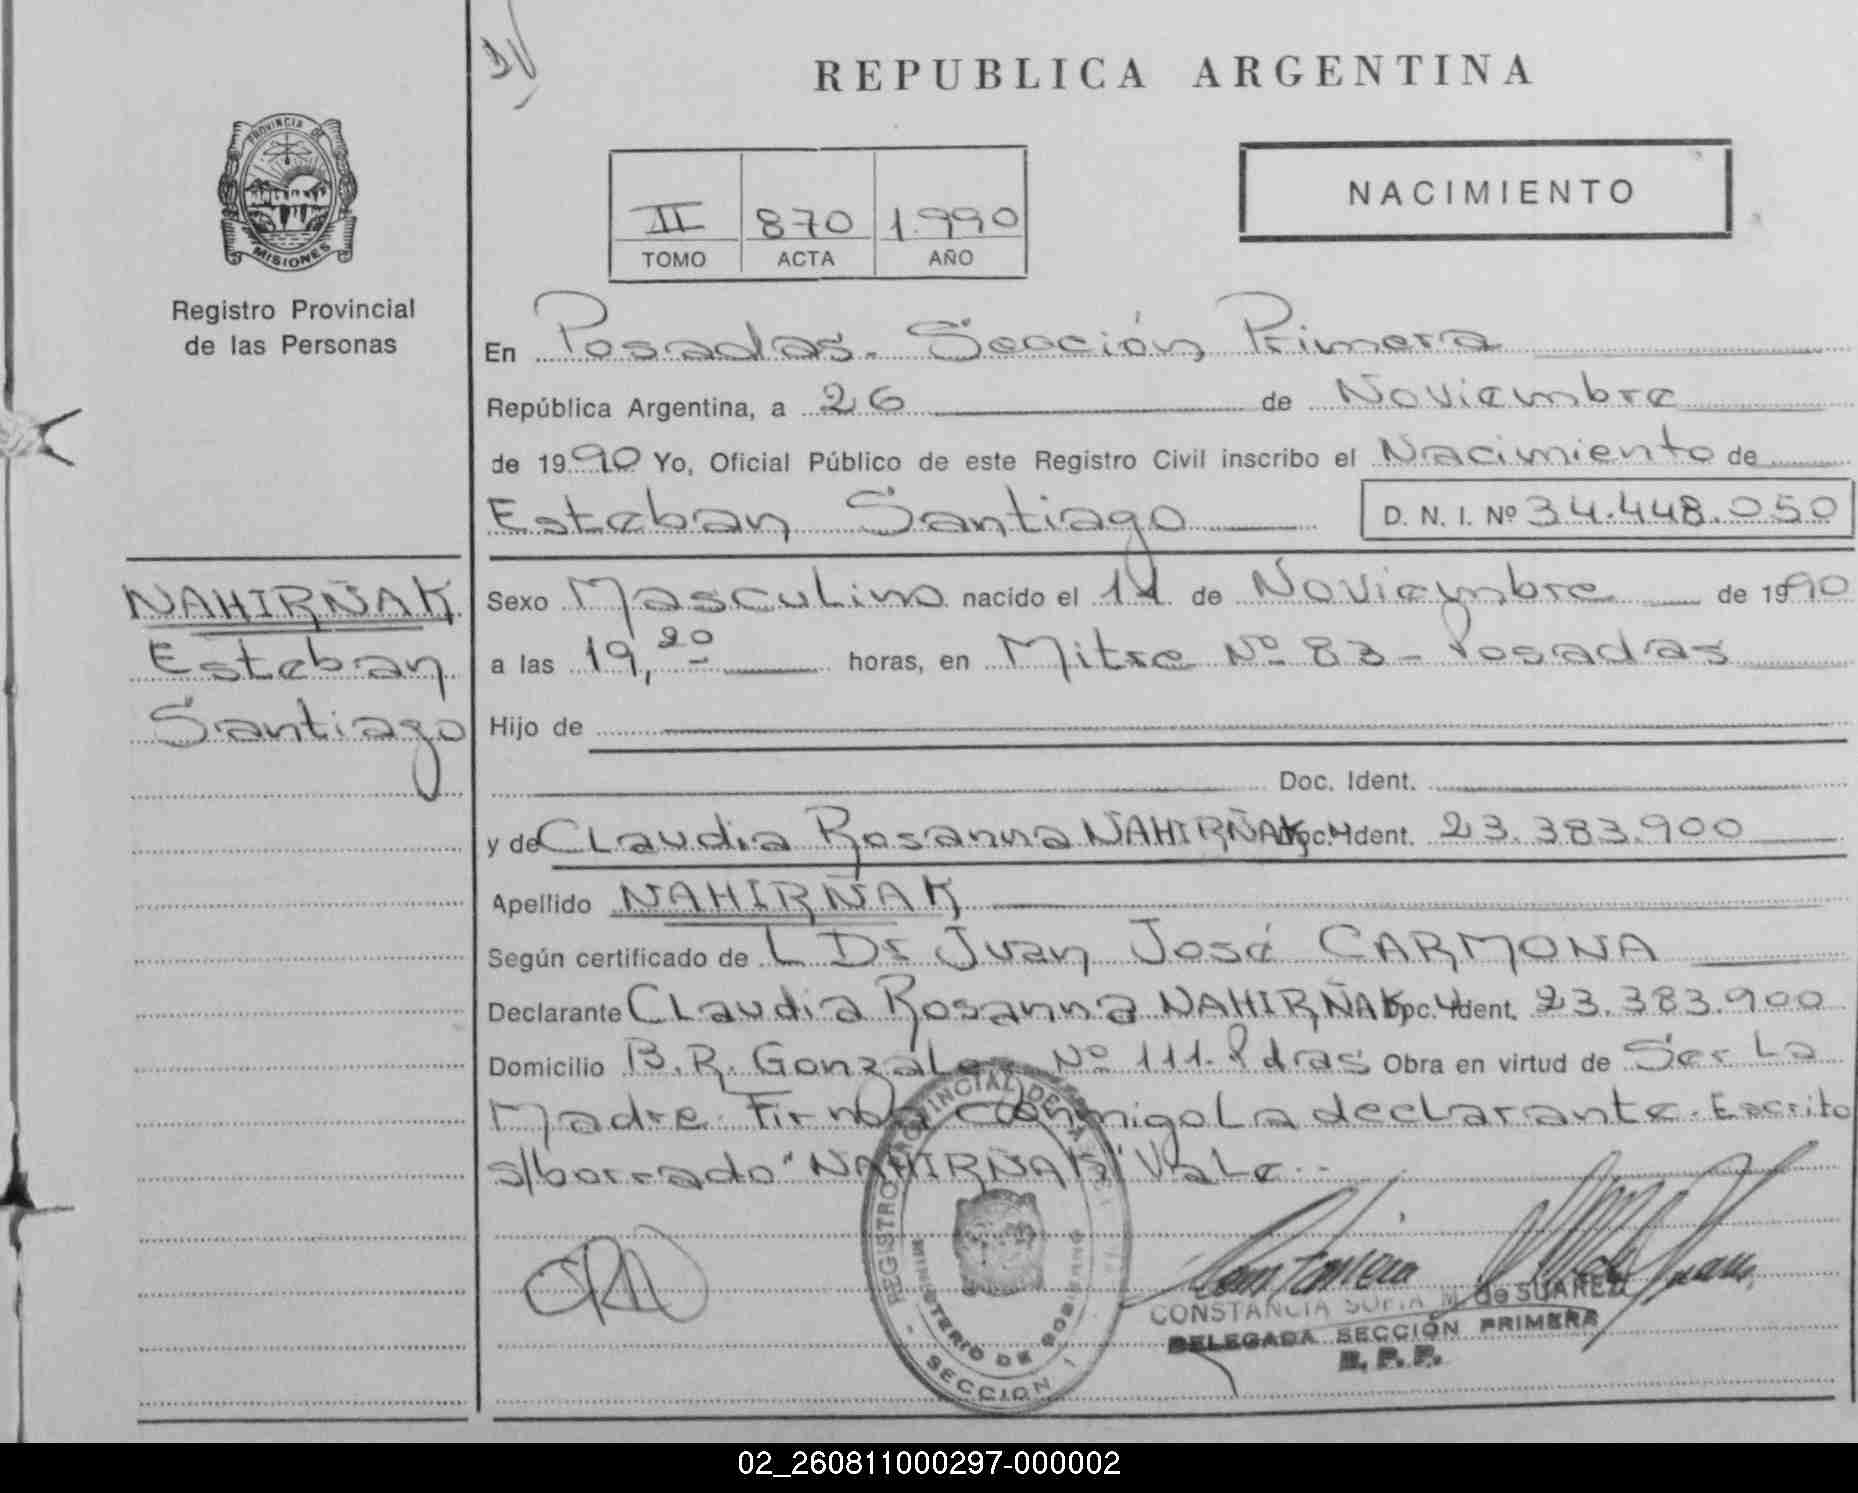 REPUBLICA ARGENTINA
PROVINCIA DE
MISIONES
Registro Provincial
de las Personas
NACIMIENTO
II 870 1.990
TOMO ACTA AÑO
En Posadas. Sección Primera
República Argentina, a 26 de Noviembre
de 1990 Yo, Oficial Público de este Registro Civil inscribo el Nacimiento de
Esteban Santiago D. N. I. Nº 34.448.050
NAHIRÑAK
Esteban
Santiago
Sexo Masculino nacido el 11 de Noviembre de 1990
a las 19,20 horas, en Mitre Nº 83 - Posadas
Hijo de
Doc. Ident.
y de Claudia Rosanna NAHIRÑAK, Doc. Ident. 23.383.900
Apellido NAHIRÑAK
Según certificado de L Dr Juan José CARMONA
Declarante Claudia Rosanna NAHIRÑAK, Doc. Ident. 23.383.900
Domicilio B.R. Gonzalez Nº 111. Pdras Obra en virtud de Ser La
Madre. Firma conmigo La declarante. Escrito
s/borrado "NAHIRÑAK" Vale.-
REGISTRO PROVINCIAL DE LA
MINISTERIO DE GOBIERNO
SECCION
CONSTANCIA SOFIA M. de SUAREZ
DELEGADA SECCIÓN PRIMERA
R. P. P.
02_260811000297-000002